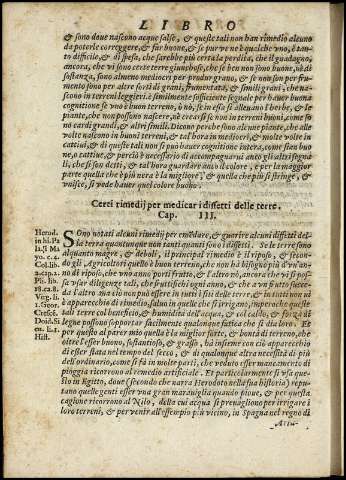 LIBRO
& sono doue nascono acque salse, & queste tali non han rimedio alcuno
da poterle correggere, & far buone, & se pur ve ne è qualche vno, è tan-
to difficile, & di spesa, che sarebbe più certa la perdita, che il guadagno,
ancora, che vi sono certe terre giuncbose, che se ben non sono buone, nè di
sostanza, sono almeno mediocri per produr grano, & se non son per fru-
mento sono per altre sorti di grani, frumentata, & simili grani, che na-
scono in terreni leggieri è similmente sufficiente segnale per hauer buona
cognitione se vno è buon terreno, ò nò, se in essa si alleuano l'herbe, & le
piante, che non possono nascere, nè crearsi se non in terreni buoni, come so
no cardi grandi, & altri simili. Dicono perche sono alcune piante, che alle
volte nascono in buoni terreni, & tal'hora in mediocri, & molte volte in
cattiui, & di queste tali non se può hauer cognitione intera, come sian buo
ne, o cattiue, & perciò è necessario di accompagnarui anco gli altri segna
li, che si son detti, & tal'hora guardare anco il colore, & per la maggior
parte quella che è più nera è la migliore, & quella che più si stringe, &
vnisce, si vede hauer quel colore buono.
Certi rimedij per medicar i diffetti delle terre.
Cap. III.
Herod.
in hi. Pa
la. li Ma
yo. c. 4.
Col. lib.
2. cap. 2.
Pli. lib.
18. ca. 8.
Ver. li.
1. Geor.
Cresce.
Doid. Si
cu. li. 1.
Hist.
Sono notati alcuni rimedij per emendare, & guarire alcuni diffetti del-
la terra quantunque non tanti quanti sono i difetti. Se le terre sono
alquanto magre, & deboli, il principal rimedio è il riposo, & (secon-
do gli Agricoltori) quello è buon terreno, che non hà bisogno più d'un an-
no di riposo, che vno anno porti frutto, & l'altro nò, ancora che vi si pos
sa vsar diligenze tali, che fruttifichi ogni anno, & che a vn frutto succe-
da l'altro ma ciò non può essere in tutti i siti delle terre, & in tutti non vi
è apparecchio di rimedio, saluo in quelle che si irrigano, imperoche queste
tali terre col beneficio, & humidità dell'acqua, & col caldo, & forza di
legne possono sopportar facilmente qualunque fatica che si dia loro. Et
per questo al parer mio quella è la miglior sorte, & bontà di terreno, che
oltre l'esser buono, sostantioso, & grasso, hà insieme con ciò apparecchio
di esser stato nel tempo del secco, & di qualunque altra necessità di più
dell'ordinario, come si fà in molte parti, che veduto esser mancamento di
pioggia ricorrono al remedio artificiale. Et particolarmente si vsa que-
sto in Egitto, doue (secondo che narra Herodoto nella sua historia) repu-
tano quelle genti esser vna gran marauiglia quando pioue, & per questa
cagione ricorrono al Nilo, della cui acqua si preuagliono per irrigare i
loro terreni, & per venir all'essempio più vicino, in Spagna nel regno di